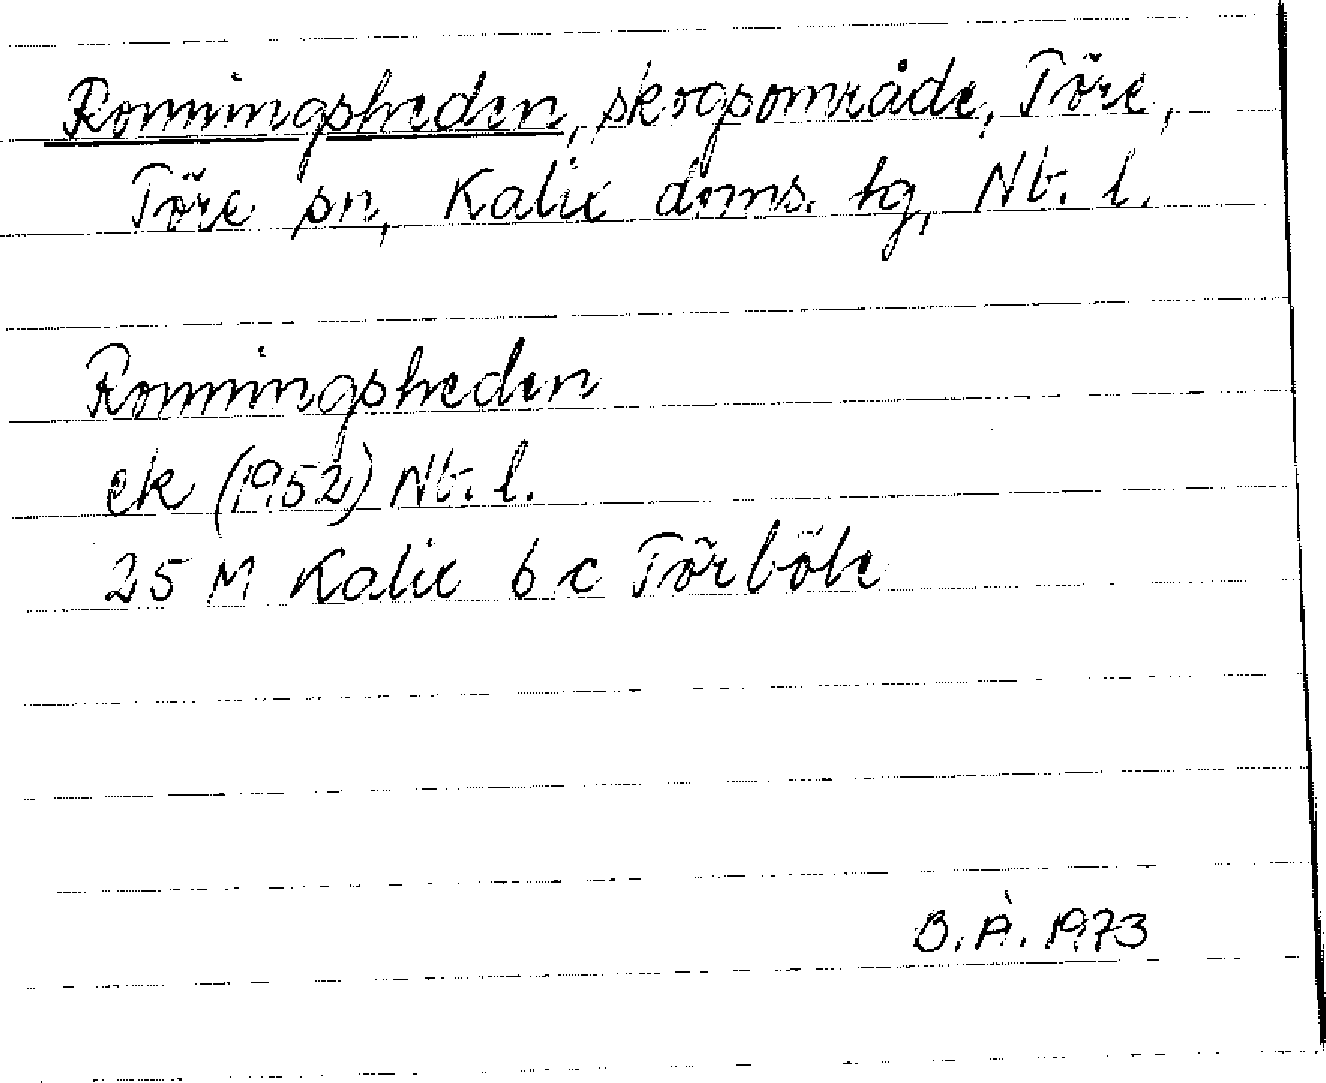 Ronningsheden, skogsområde, Töre,
Töre sn, Kalix doms. tg, Nb. l.
Ronningsheden
ek (1952) Nb. l.
25 M Kalix 6 c Törböle
B. Å. 1973